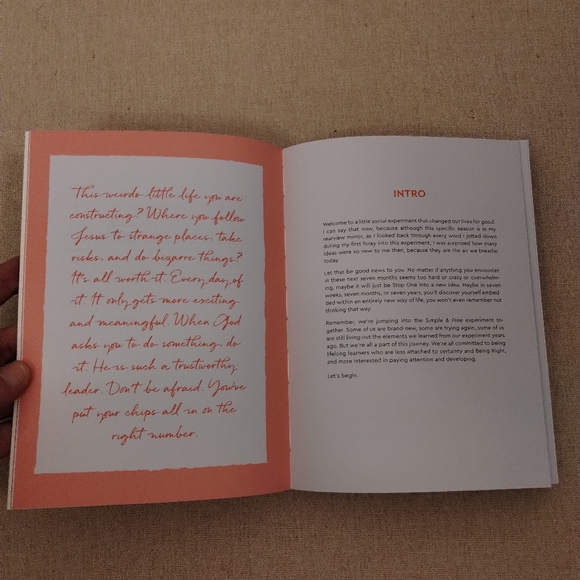 This weirdo little life you are
constructing? Where you follow
Jesus to strange places, take
risks, and do bizarre things?
It's all worth it. Every day of
it. It only gets more exciting
and meaningful. When God
asks you to do something, do
it. He is such a trustworthy
leader. Don't be afraid. You've
put your chips all in on the
right number.
INTRO
Welcome to a little social experiment that changed our lives for good.
I can say that now, because although this specific season is in my
rearview mirror, as I looked back through every word I jotted down
during my first foray into this experiment, I was surprised how many
ideas were so new to me then, because they are the air we breathe
today.
Let that be good news to you. No matter if anything you encounter
in these next seven months seems too hard or crazy or overwhelm-
ing, maybe it will just be Step One into a new idea. Maybe in seven
weeks, seven months, or seven years, you'll discover yourself embed-
ded within an entirely new way of life, you won't even remember not
thinking that way.
Remember, we're jumping into the Simple & Free experiment to-
gether. Some of us are brand-new, some are trying again, some of us
are still living out the elements we learned from our experiment years
ago. But we're all a part of this journey. We're all committed to being
lifelong learners who are less attached to certainty and Being Right,
and more interested in paying attention and developing.
Let's begin.